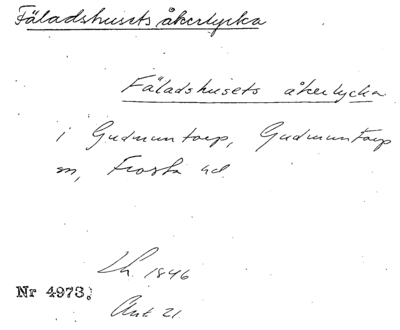 Fäladshusets åkerlycka
Fäladshusets åkerlycka
i Gudmuntorp, Gudmuntorp
m, Frosta hd.
Lh. 1846
Nr 4973.
Akt 21.